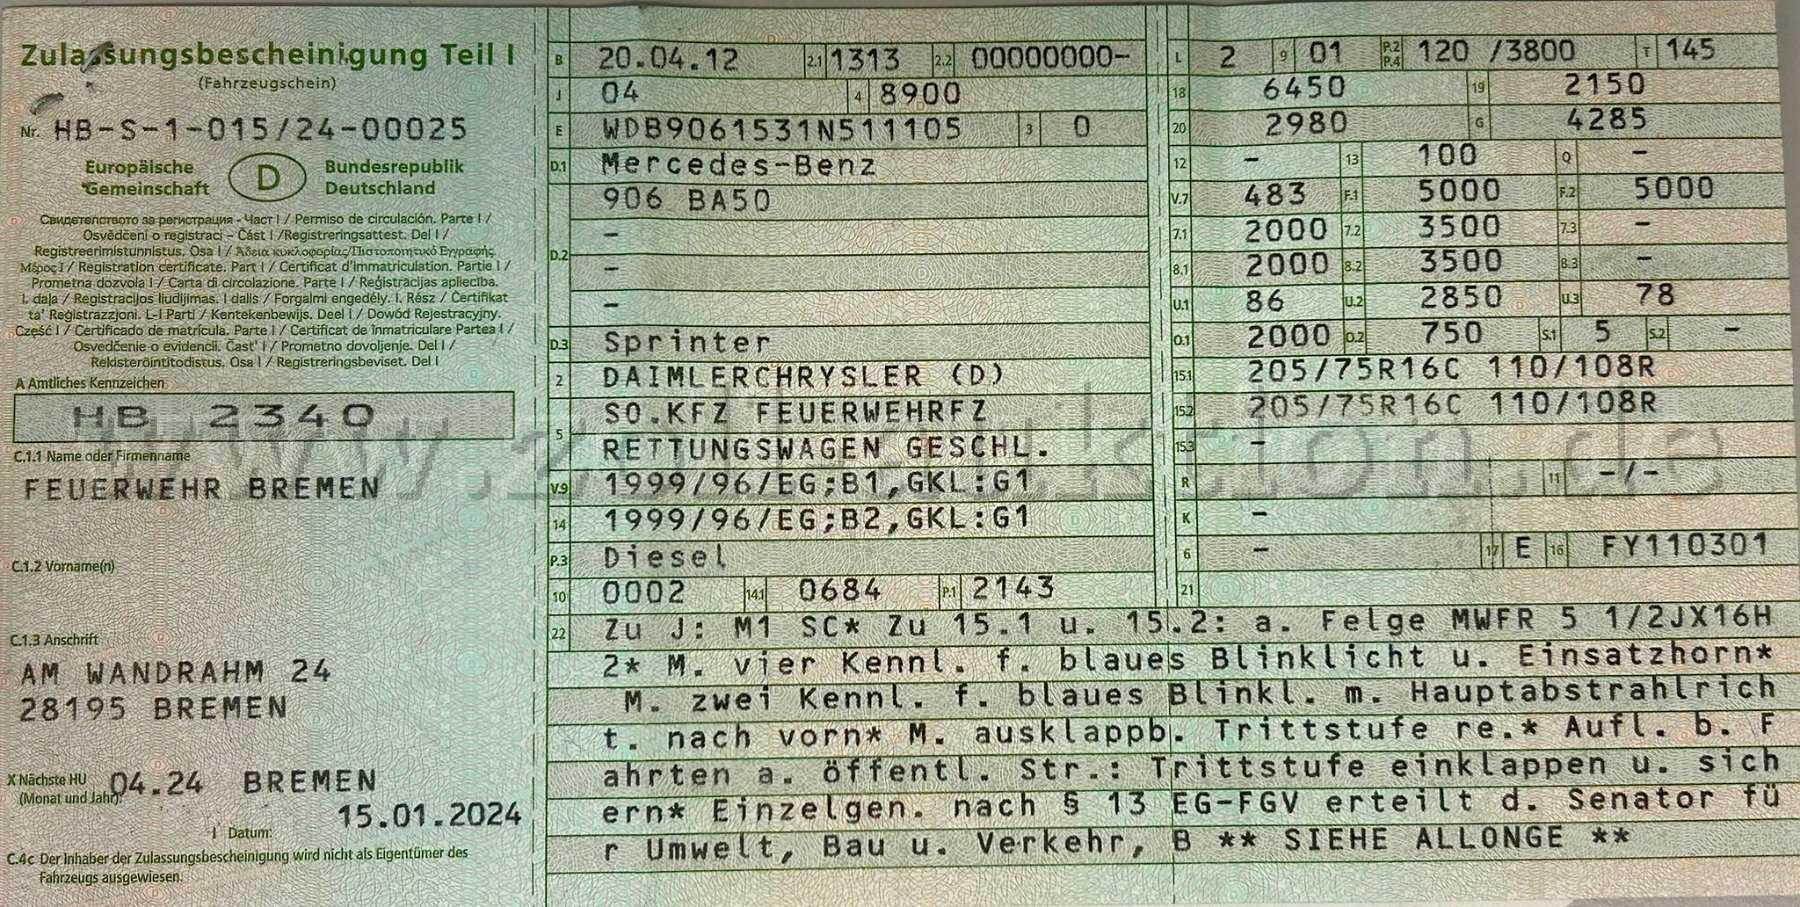 Zulassungsbescheinigung Teil I
(Fahrzeugschein)
Nr. HB-S-1-015/24-00025
Europäische Gemeinschaft D Bundesrepublik Deutschland
Свидетелството за регистрация - Част I / Permiso de circulación. Parte I /
Osvědčení o registraci - Část I /Registreringsattest. Del I /
Registreerimistunnistus. Osa I / Άδεια κυκλοφορίας/Πιστοποιητικό Εγγραφής
Μέρος I / Registration certificate. Part I / Certificat d'immatriculation. Partie I /
Prometna dozvola I / Carta di circolazione. Parte I / Reģistrācijas apliecība.
I. daļa / Registracijos liudijimas. I dalis / Forgalmi engedély. I. Rész / Ċertifikat
ta' Reġistrazzjoni. L-I Parti / Kentekenbewijs. Deel I / Dowód Rejestracyjny.
Część I / Certificado de matrícula. Parte I / Certificat de înmatriculare Partea I /
Osvedčenie o evidencii. Časť I / Prometno dovoljenje. Del I /
Rekisteröintitodistus. Osa I / Registreringsbeviset. Del I
A Amtliches Kennzeichen
HB 2340
C.1.1 Name oder Firmenname
FEUERWEHR BREMEN
C.1.2 Vorname(n)
C.1.3 Anschrift
AM WANDRAHM 24
28195 BREMEN
X Nächste HU (Monat und Jahr): 04.24 BREMEN
15.01.2024
I Datum:
C.4c Der Inhaber der Zulassungsbescheinigung wird nicht als Eigentümer des
Fahrzeugs ausgewiesen.
B 20.04.12 2.1 1313 2.2 00000000-
J 04 4 8900
E WDB9061531N511105 3 0
D.1 Mercedes-Benz
906 BA50
-
D.2 -
-
D.3 Sprinter
2 DAIMLERCHRYSLER (D)
5 SO.KFZ FEUERWEHRFZ
RETTUNGSWAGEN GESCHL.
V.9 1999/96/EG;B1,GKL:G1
14 1999/96/EG;B2,GKL:G1
P.3 Diesel
10 0002 14.1 0684 P.1 2143
L 2 9 01 P.2 P.4 120 /3800 T 145
18 6450 19 2150
20 2980 G 4285
12 - 13 100 Q -
V.7 483 F.1 5000 F.2 5000
7.1 2000 7.2 3500 7.3 -
8.1 2000 8.2 3500 8.3 -
U.1 86 U.2 2850 U.3 78
O.1 2000 O.2 750 S.1 5 S.2 -
15.1 205/75R16C 110/108R
15.2 205/75R16C 110/108R
15.3 -
R 11 -/-
K -
6 - 17 E 16 FY110301
21
22 Zu J: M1 SC* Zu 15.1 u. 15.2: a. Felge MWFR 5 1/2JX16H
2* M. vier Kennl. f. blaues Blinklicht u. Einsatzhorn*
M. zwei Kennl. f. blaues Blinkl. m. Hauptabstrahlrich
t. nach vorn* M. ausklappb. Trittstufe re.* Aufl. b. F
ahrten a. öffentl. Str.: Trittstufe einklappen u. sich
ern* Einzelgen. nach § 13 EG-FGV erteilt d. Senator fü
r Umwelt, Bau u. Verkehr, B ** SIEHE ALLONGE **